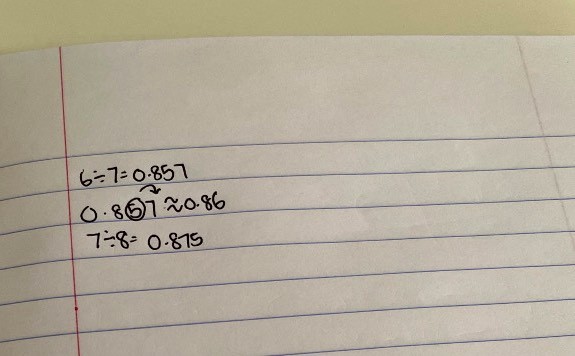 6÷7=0.857
0.857≈0.86
7÷8= 0.875